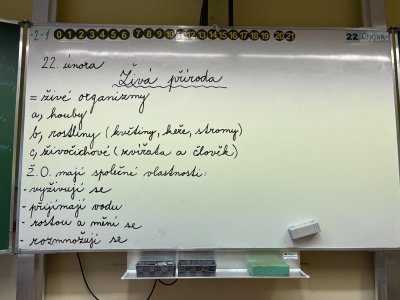 -2-1 0 1 2 3 4 5 6 7 8 9 10 11 12 13 14 15 16 17 18 19 20 21 22 ÚNORA
22. února
Živá příroda
= živé organizmy
a, houby
b, rostliny (květiny, keře, stromy)
c, živočichové (zvířata a člověk)
Ž.O. mají společné vlastnosti:
- vyživují se
- přijímají vodu
- rostou a mění se
- rozmnožují se